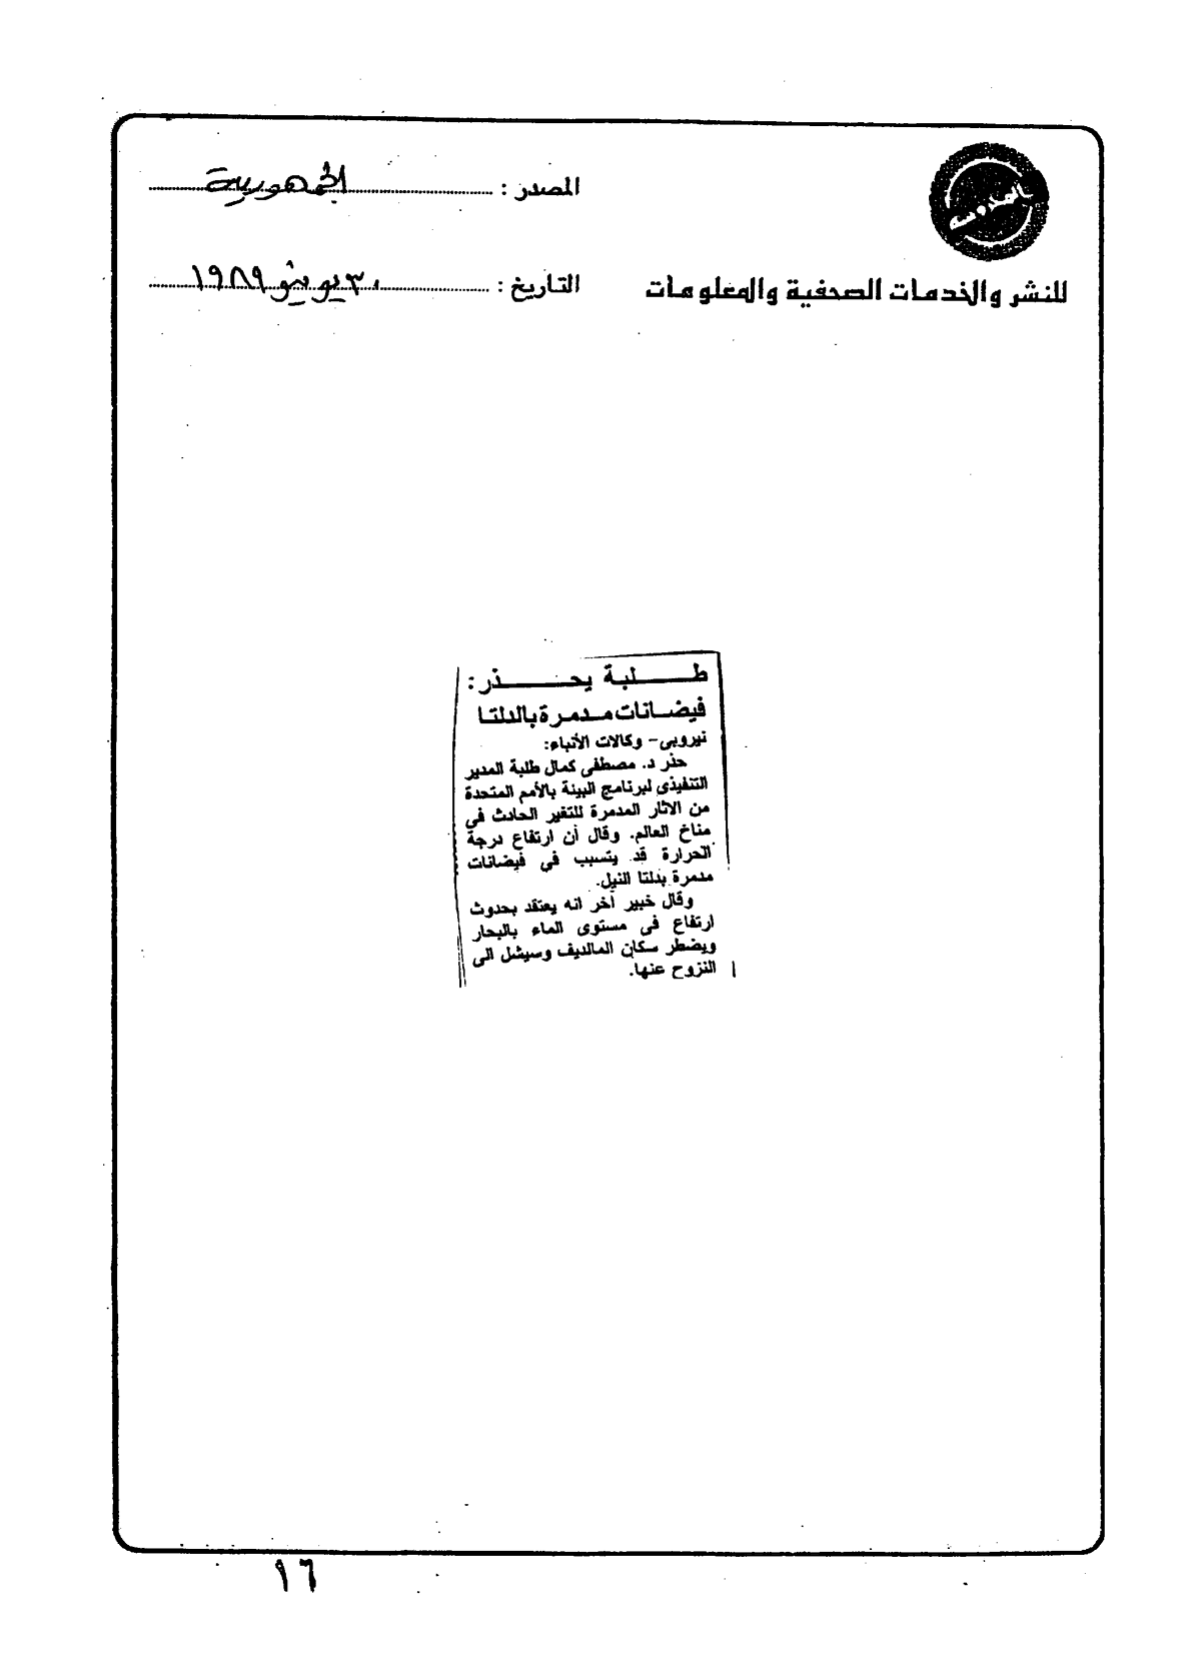 المصدر : الجمهورية
التاريخ : ٣٠ يونيو ١٩٨٩
للنشر والخدمات الصحفية والمعلومات
طـــلبة يحـــــذر:
فيضــانات مـدمـرة بالدلتـا
نيروبى- وكالات الأنباء:
حذر د. مصطفى كمال طلبة المدير
التنفيذى لبرنامج البيئة بالأمم المتحدة
من الاثار المدمرة للتغير الحادث في
مناخ العالم. وقال أن ارتفاع درجة
الحرارة قد يتسبب في فيضانات
مدمرة بدلتا النيل.
وقال خبير آخر انه يعتقد بحدوث
ارتفاع فى مستوى الماء بالبحار
ويضطر سكان المالديف وسيشل الى
النزوح عنها.
١٦